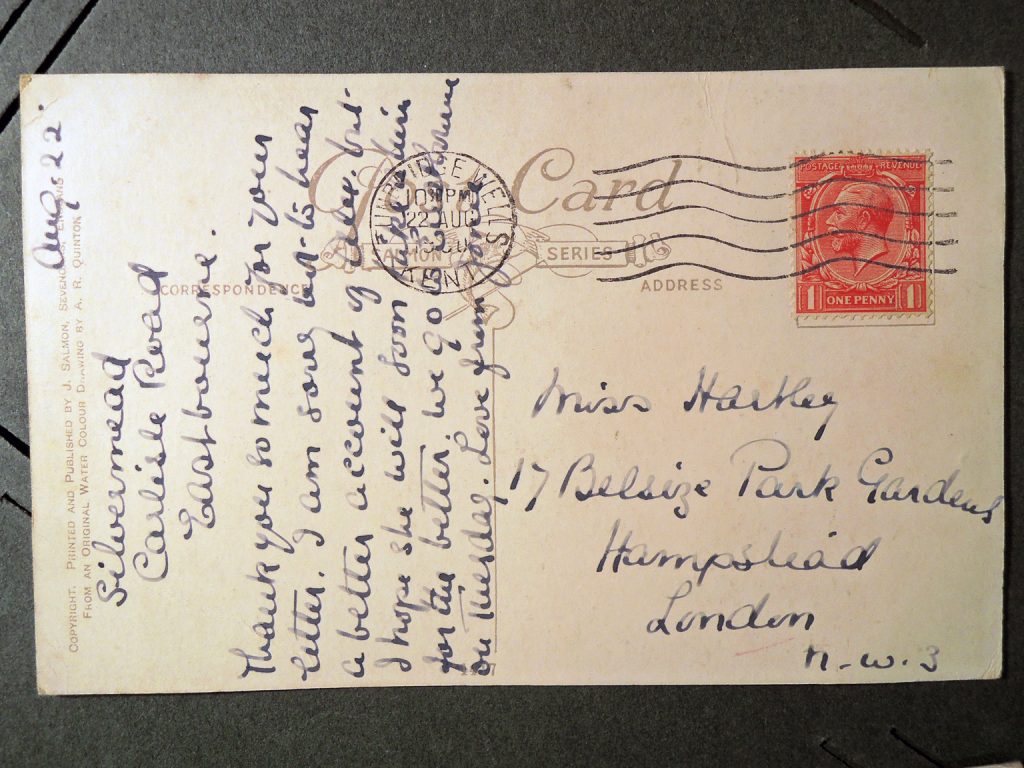 Post Card
SALMON SERIES
CORRESPONDENCE
ADDRESS
COPYRIGHT. PRINTED AND PUBLISHED BY J. SALMON, SEVENOAKS, ENGLAND
FROM AN ORIGINAL WATER COLOUR DRAWING BY A. R. QUINTON
TUNBRIDGE WELLS
22 AUG
KENT
POSTAGE REVENUE
1 ONE PENNY 1
Aug. 22.
Silvermead
Carlisle Road
Eastbourne.
Thank you so much for your
letter. I am sorry not to hear
a better account of but
I hope she will soon take turn
for the better. we go home
on Tuesday. Love from
Miss Hartley
17 Belsize Park Gardens
Hampstead
London
N.W.3